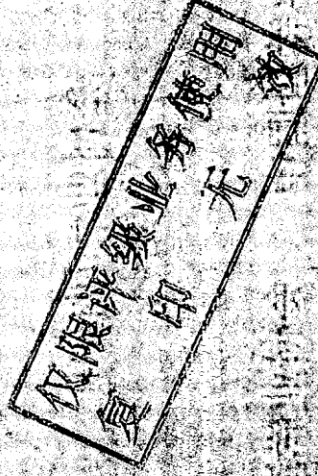 仅限评级业务使用
复印无效